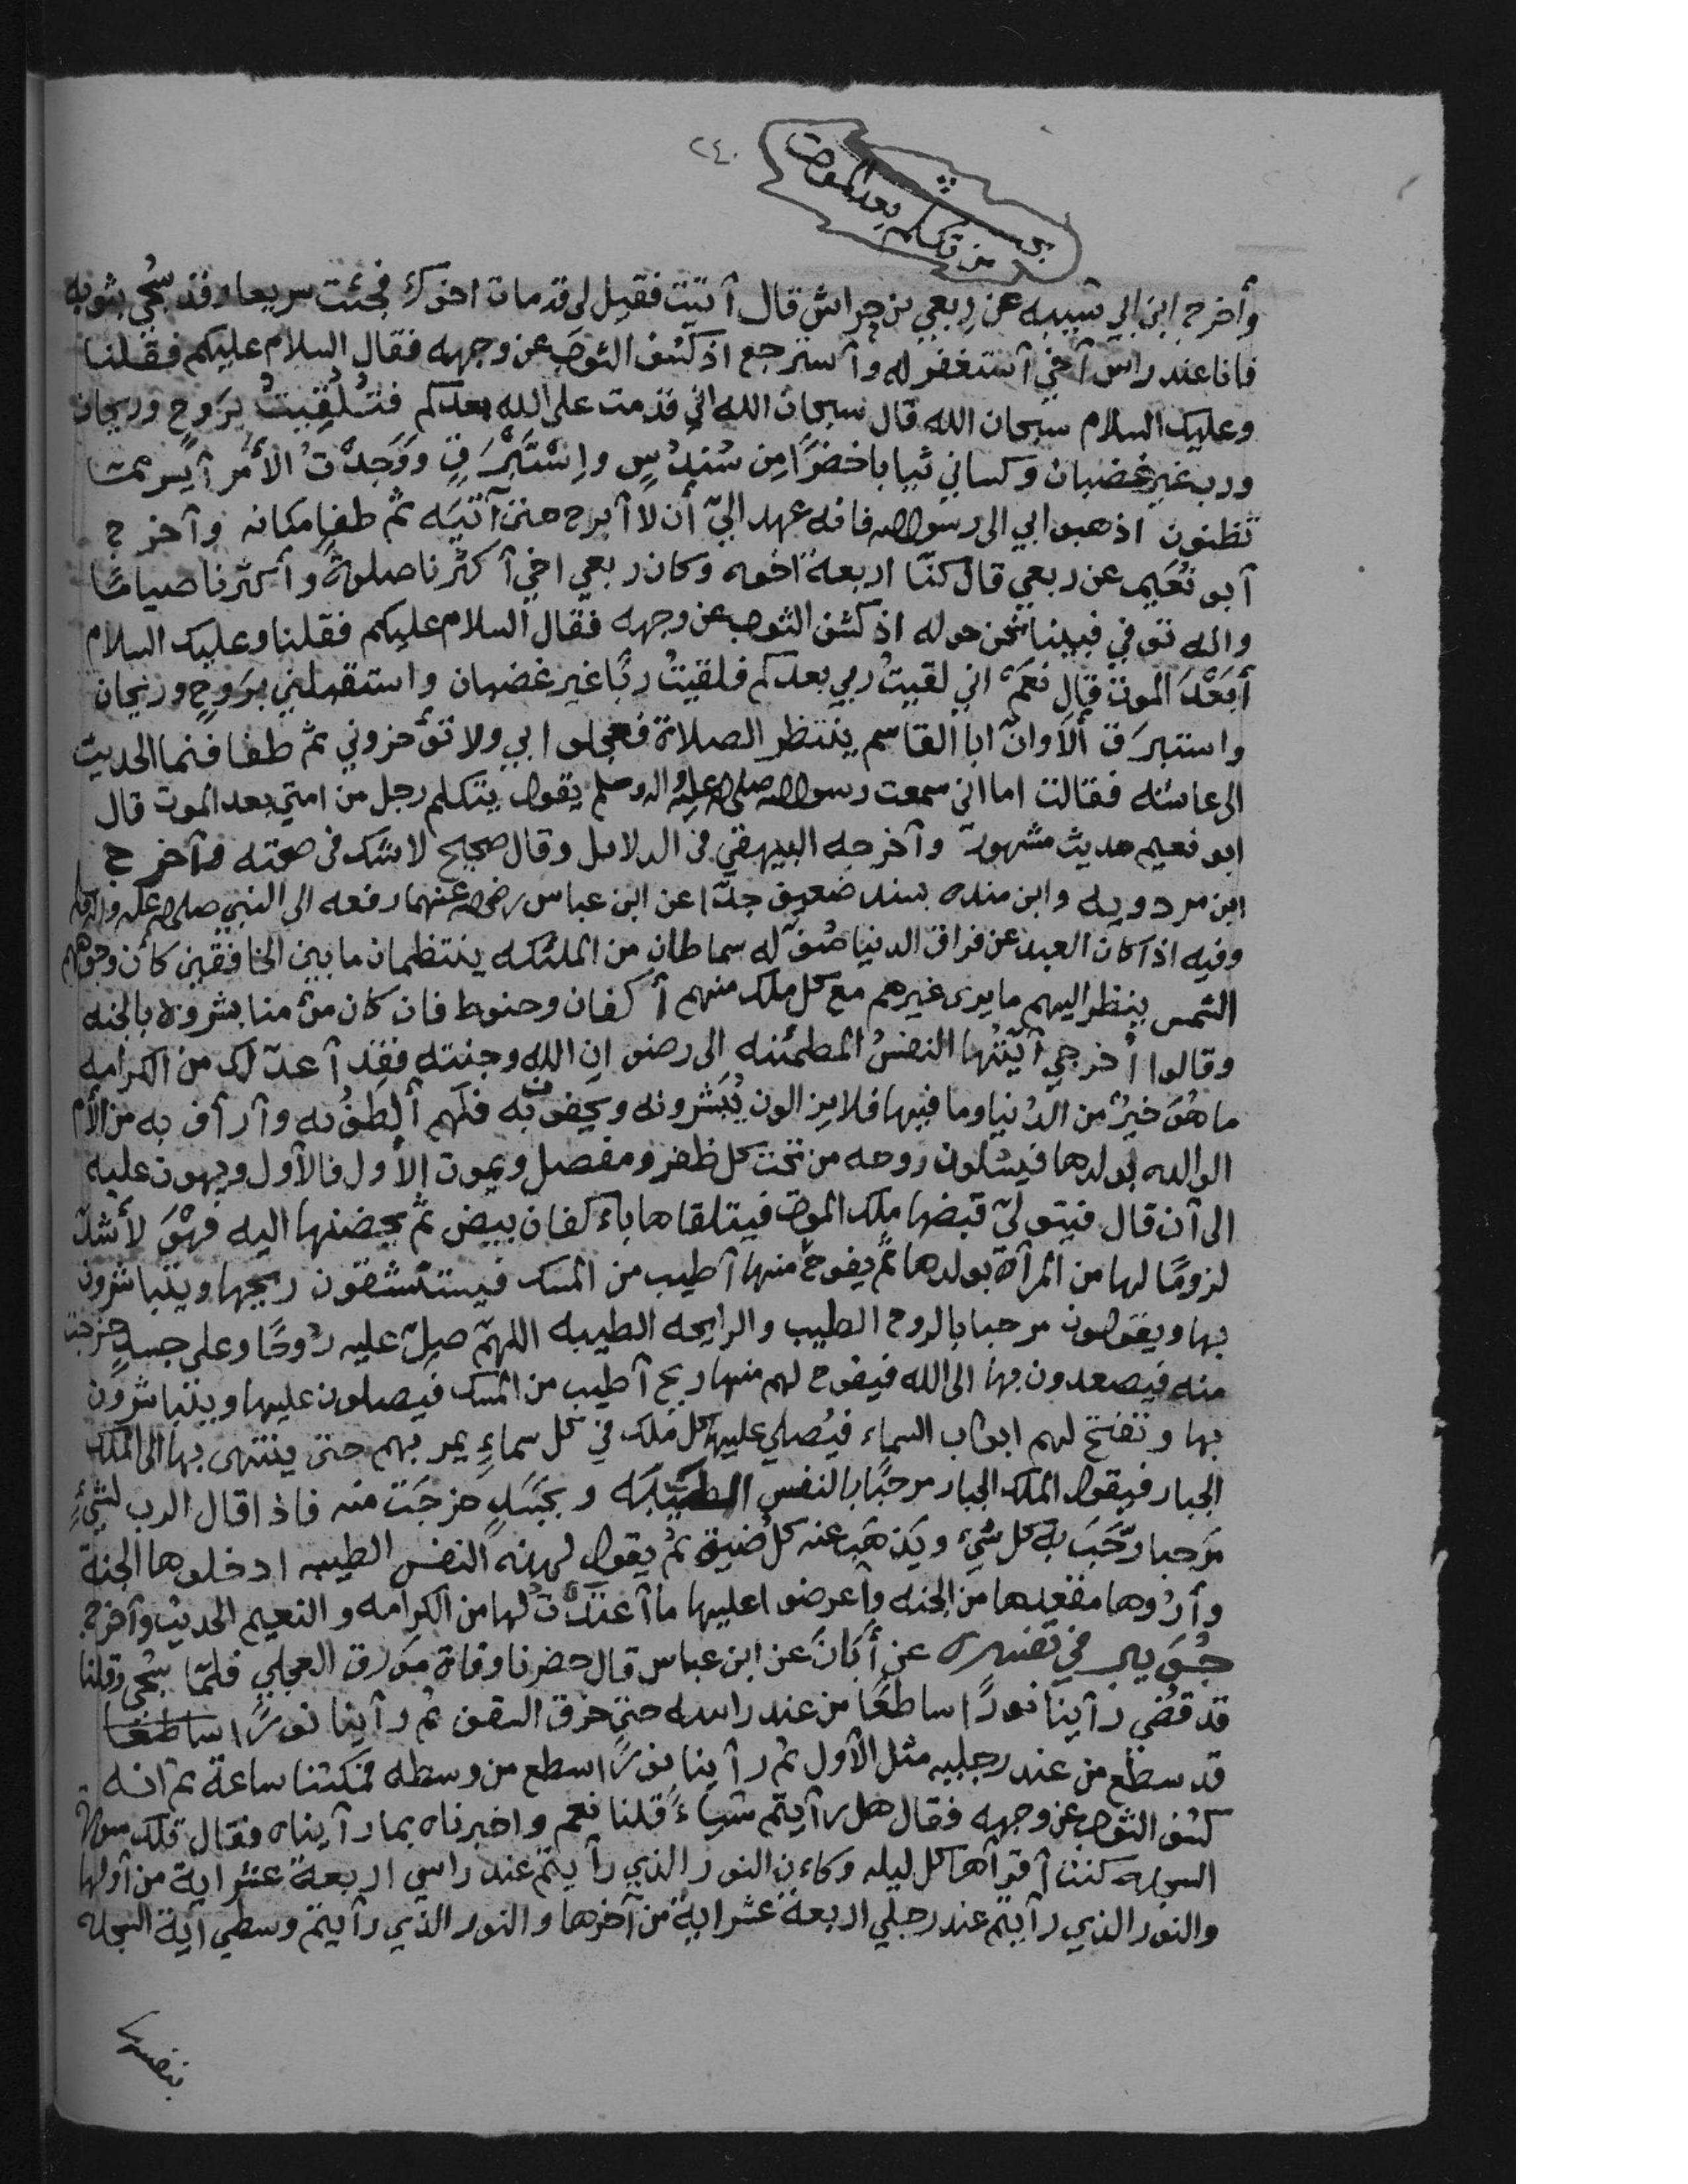 ٢٤٠
من تكلم بعد الموت
وأخرج ابن ابي شيبه عن ربعي بن حراش قال أتيت فقيل لي قد مات اخوك فجئت سريعا وقد سُجّي بثوبه
فانا عند راس أخي أستغفر له وأسترجع اذ كشف الثوب عن وجهه فقال السلام عليكم فقلنا
وعليك السلام سبحان الله قال سبحان الله اني قدمت على الله بعدكم فتُلُقِيتُ بَروحٍ وريحان
ورب غير غضبان وكساني ثيابا خضرًا مِن سُندُسٍ وإِسْتَبْرَقٍ ووَجَدْتُ الأمْر أيسر مما
تظنون اذهبوا بي الى رسول الله فانه عهد اليّ أن لا أبرح حتى آتيَه ثم طفا مكانه وأخرج
أبو نُعَيم عن ربعي قال كنّا اربعة اخوه وكان ربعي اخي أكثرنا صلوةً وأكثرنا صيامًا
وانه توفي فبينا نحن حوله اذ كشف الثوب عن وجهه فقال السلام عليكم فقلنا وعليك السلام
أبَعْدَ الموت قال نعَمْ اني لقيتُ ربي بعدكم فلقيتُ ربًّا غير غضبان واستقبلني بَروحٍ وريحان
واستبرَق ألاَ وانّ ابا القاسم ينتظر الصلاة فعجلوا بي ولا تؤخروني ثم طفا فنما الحديث
الى عائشه فقالت اما اني سمعت رسول الله صلى الله عليه واله وسلم يقول يتكلم رجل من امتي بعد الموت قال
ابو نعيم حديث مشهور وأخرجه البيهقي في الدلايل وقال صحيح لا شك في صحته وأخرج
ابن مردويه وابن منده بسند ضعيف جدّا عن ابن عباس رضي الله عنهما رفعه الى النبي صلى الله عليه واله وسلم
وفيه اذا كان العبد عن فراق الدنيا صُفّ له سماطان من الملئكه ينتظمان ما بين الخافقين كأن وجوههم
الشمس ينظر اليهم ما يرى غيرهم مع كل ملك منهم أكفان وحنوط فان كان مؤمنا بشروه بالجنه
وقالوا أخرجي أيّتُها النفسُ المطمئنه الى رضوان الله وجنته فقد أعدّ لك من الكرامه
ما هُوَ خيرٌ من الدنيا وما فيها فلا يزالون يُبَشرونه ويحفون به فلَهم ألطفُ به وأرأف به من الأم
الوالده بولدها فيسلون روحه من تحت كل ظفر ومفصل ويموت الأول فالأول ويهون عليه
الى أن قال فيتولىّ قبضها ملك الموت فيتلقاها باءكفان بيض ثم يحضنها اليه فهْوَ لأشدّ
لزومًا لها من المرأة بولدها ثم يفوح منها أطيب من المسك فيستنشقون ريحها ويتباشرون
بها ويقولون مرحبا بالروح الطيب والرايحه الطيبه اللهمّ صلّ عليه رُوحًا وعلى جسدٍ خرجت
منه فيصعدون بها الى الله فيفوح لهم منها ريح أطيب من المسك فيصلون عليها ويتباشرون
بها وتفتح لهم ابواب السماء فيُصلي عليها كل مَلك في كل سماءٍ يمر بهم حتى ينتهى بها الى الملك
الجبار فيقول الملك الجبار مرحبًا بالنفس الطيّبَه وبجَسَدٍ خرجَت منه فاذا قال الرب لشيءٍ
مَرحبا رحّبَ به كل شيء ويَذهَب عنه كل ضيق ثم يقول لهذه النفس الطيبه ادخلوها الجنة
وأرُوها مقعدها من الجنه وأعرضوا عليها ما أعتَدتُ لها من الكرامه والنعيم الحديث وأخرج
جُوَيبر في تفسيره عن أَبَانَ عن ابن عباس قال حضرنا وفاة مَورق العجلي فلمّا سُجّي وقلنا
قد قُضي رأينا نورًا ساطعًا من عند راسه حتى خرق السقف ثم رأينا نورًا ساطعًا
قد سطع من عند رجليه مثل الأول ثم رأينا نورًا سطع من وسطه فمكثنا ساعة ثم انه
كشف الثوب عن وجهه فقال هل رأيتم شياءً قلنا نعم واخبرناه بما رأيناه فقال تلك سورة
السجده كنت أقرأها كل ليله وكاءن النور الذي رأيتم عند راسي اربعة عشر اية من أولها
والنور الذي رأيتم عند رجلي اربعة عشر اية من آخرها والنور الذي رأيتم وسطي آية السجدة